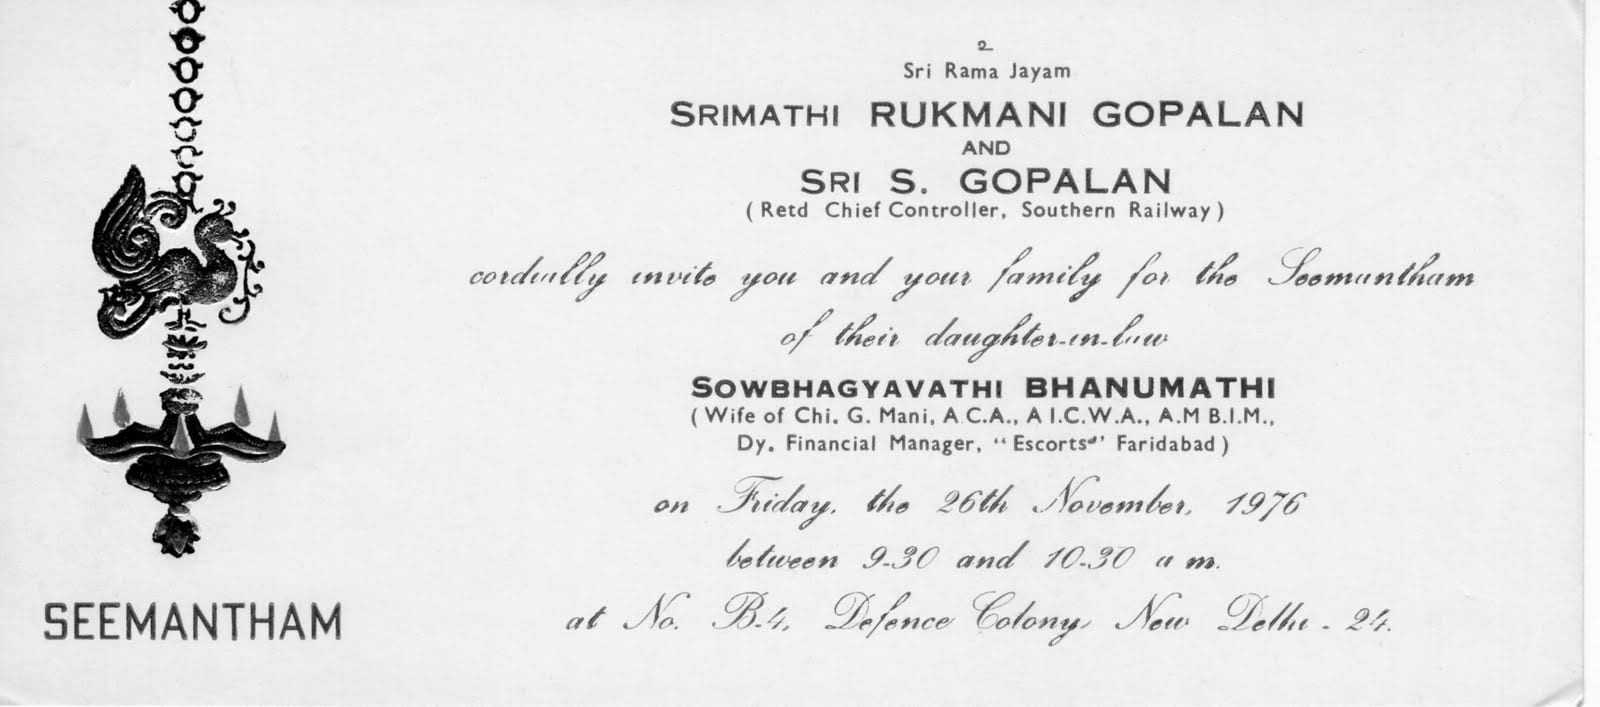 உ
Sri Rama Jayam
SRIMATHI RUKMANI GOPALAN
AND
SRI S. GOPALAN
(Retd Chief Controller, Southern Railway)
cordially invite you and your family for the Seemantham
of their daughter-in-law
SOWBHAGYAVATHI BHANUMATHI
(Wife of Chi. G. Mani, A.C.A., A I.C.W.A., A.M B.I.M.,
Dy. Financial Manager, "Escorts" Faridabad)
on Friday, the 26th November, 1976
between 9-30 and 10-30 a m.
at No. B-4, Defence Colony, New Delhi - 24.
SEEMANTHAM